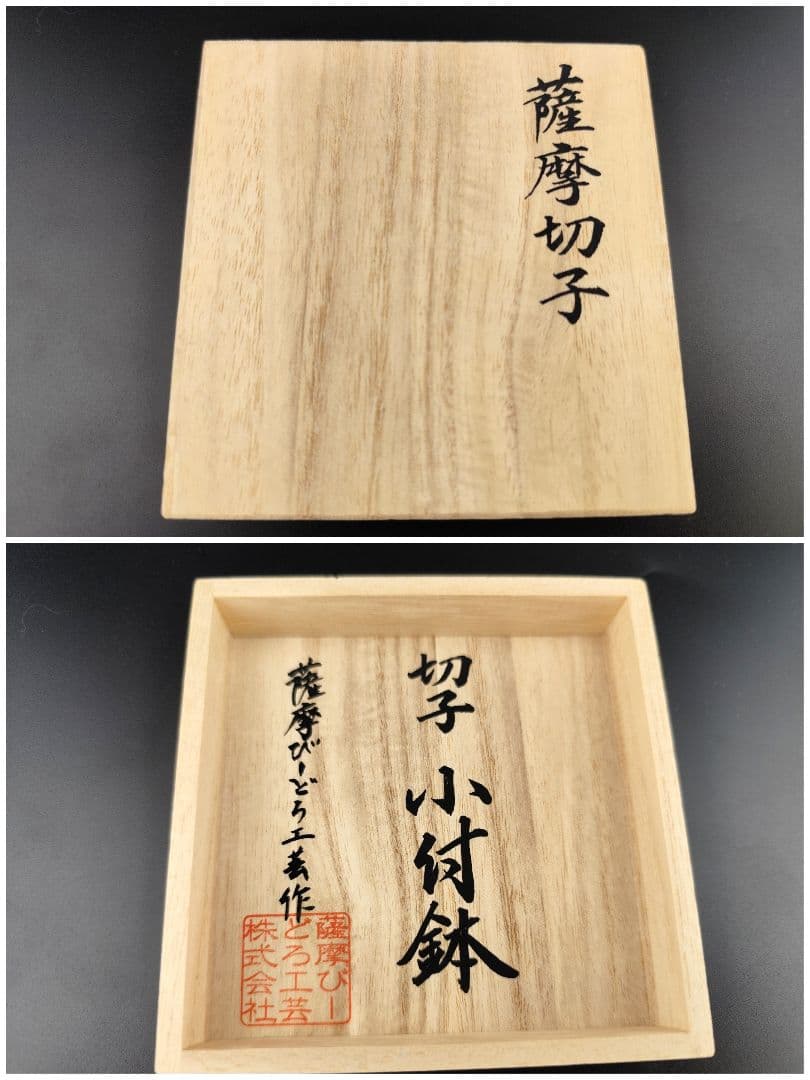 薩摩切子
切子 小付鉢
薩摩びーどろ工芸作
薩摩びー
どろ工芸
株式会社